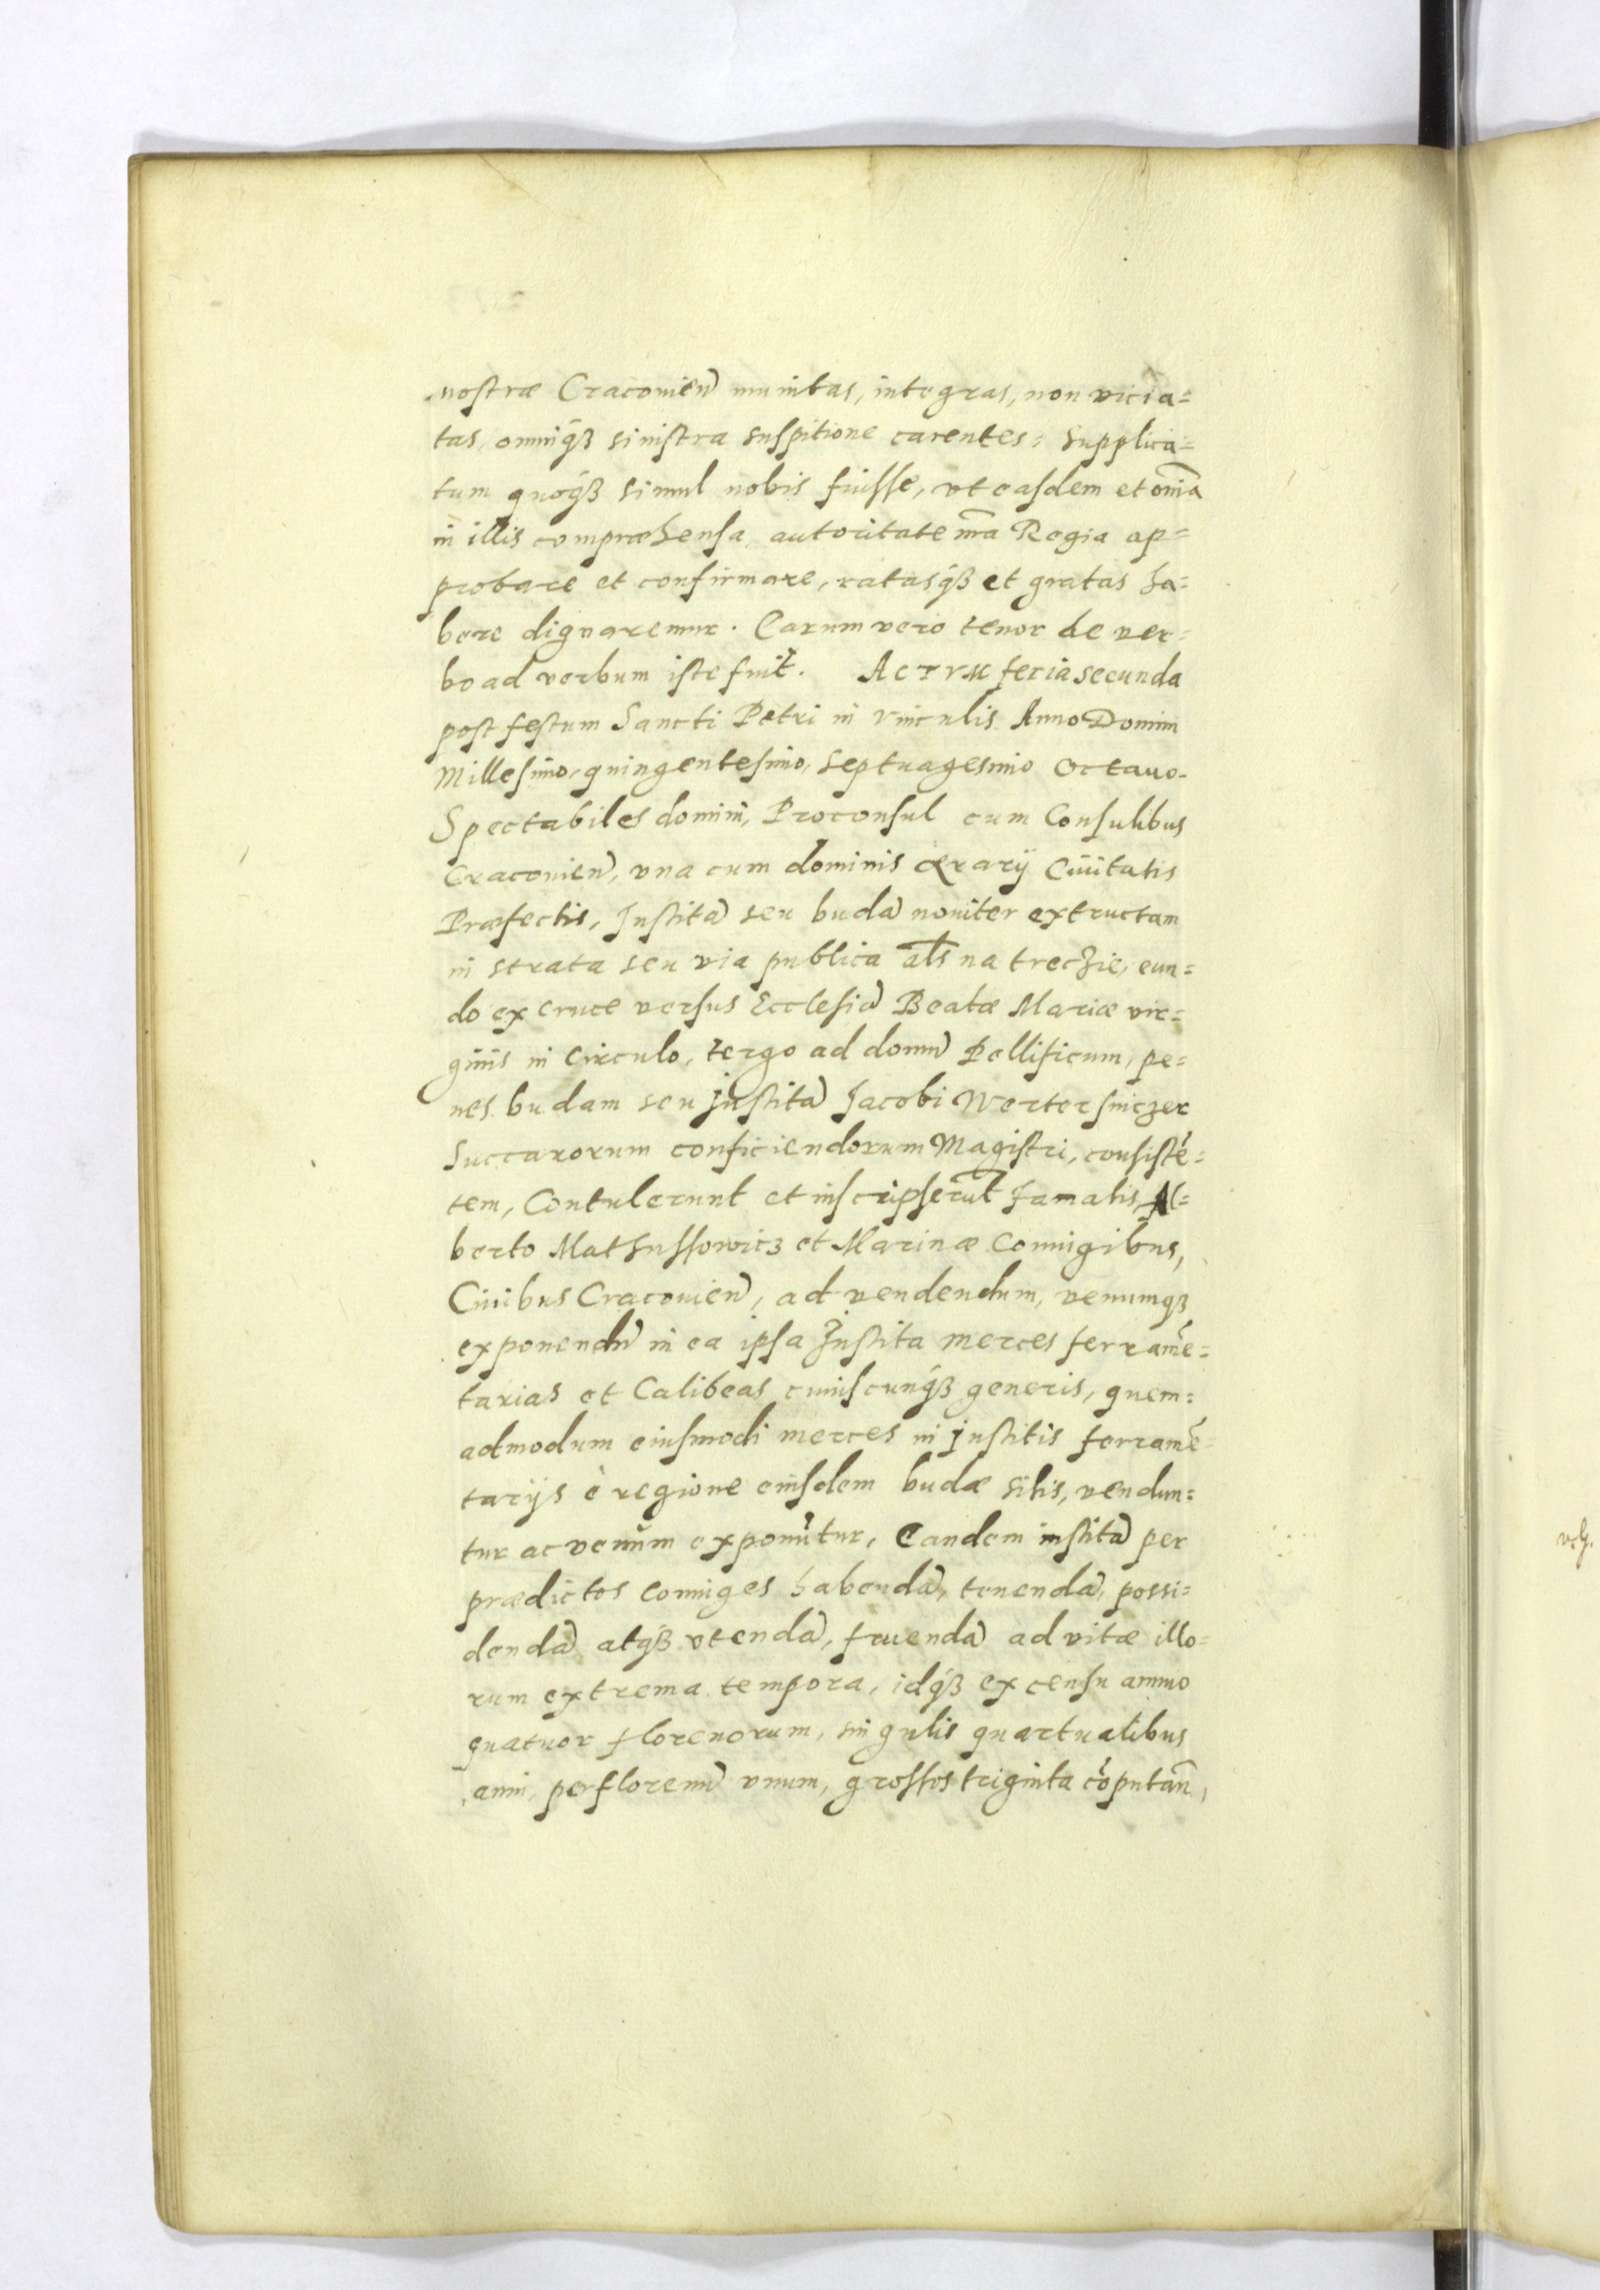 nostræ Cracovieñ munitas, integras, non vicia=
tas, omniq́ꝫ sinistra suspitione carentes: Supplica=
tum quoq́ꝫ simul nobis fuisse, vt easdem et om̃ia
in illis compræhensa, autoritate nr̃a Regia ap=
probare et confirmare, ratasq́ꝫ et gratas ha=
bere dignaremur. Earum vero tenor de ver=
bo ad verbum iste fuit. ACTVM feria secunda
post festum Sancti Petri in vinculis Anno Domini
Millesimo, quingentesimo, Septuagesimo Octauo.
Spectabiles domini, Proconsul cum Consulibus
Cracovieñ, vna cum dominis ærarij Ciuitatis
Præfectis, Institã seu budã nouiter extructam
in strata seu via publica al̃s na treczie, eun=
do ex cruce versus Ecclesiã Beatæ Mariæ vir=
ginis in Circulo, tergo ad domũ Pellificum, pe=
nes budam seu jnstitã Jacobi Wertersniczer
Succarorum conficiendorum Magistri, consistẽ=
tem, Contulerunt et inscripserũt famatis, Al=
berto Mathussowicz et Marinæ Coniugibus,
Ciuibus Cracovieñ, ad vendendum, venumqꝫ
exponendũ in ea ipsa Jnstita merces ferramẽ=
tarias et Calibeas cuiuscunq́ꝫ generis, quem=
admodum eiusmodi merces in jnstitis ferramẽ=
tarijs è regione eiusdem budæ sitis, vendun=
tur ac venum exponũtur, Eandem institã per
prædictos coniuges habendã, tenendã, possi=
dendã atq́ꝫ vtendã, fruendã ad vitæ illo=
rum extrema tempora, idq́ꝫ ex censu annuo
quatuor florenorum, singulis quartualibus
anni, per florenũ vnum, grossos triginta cõputañ,